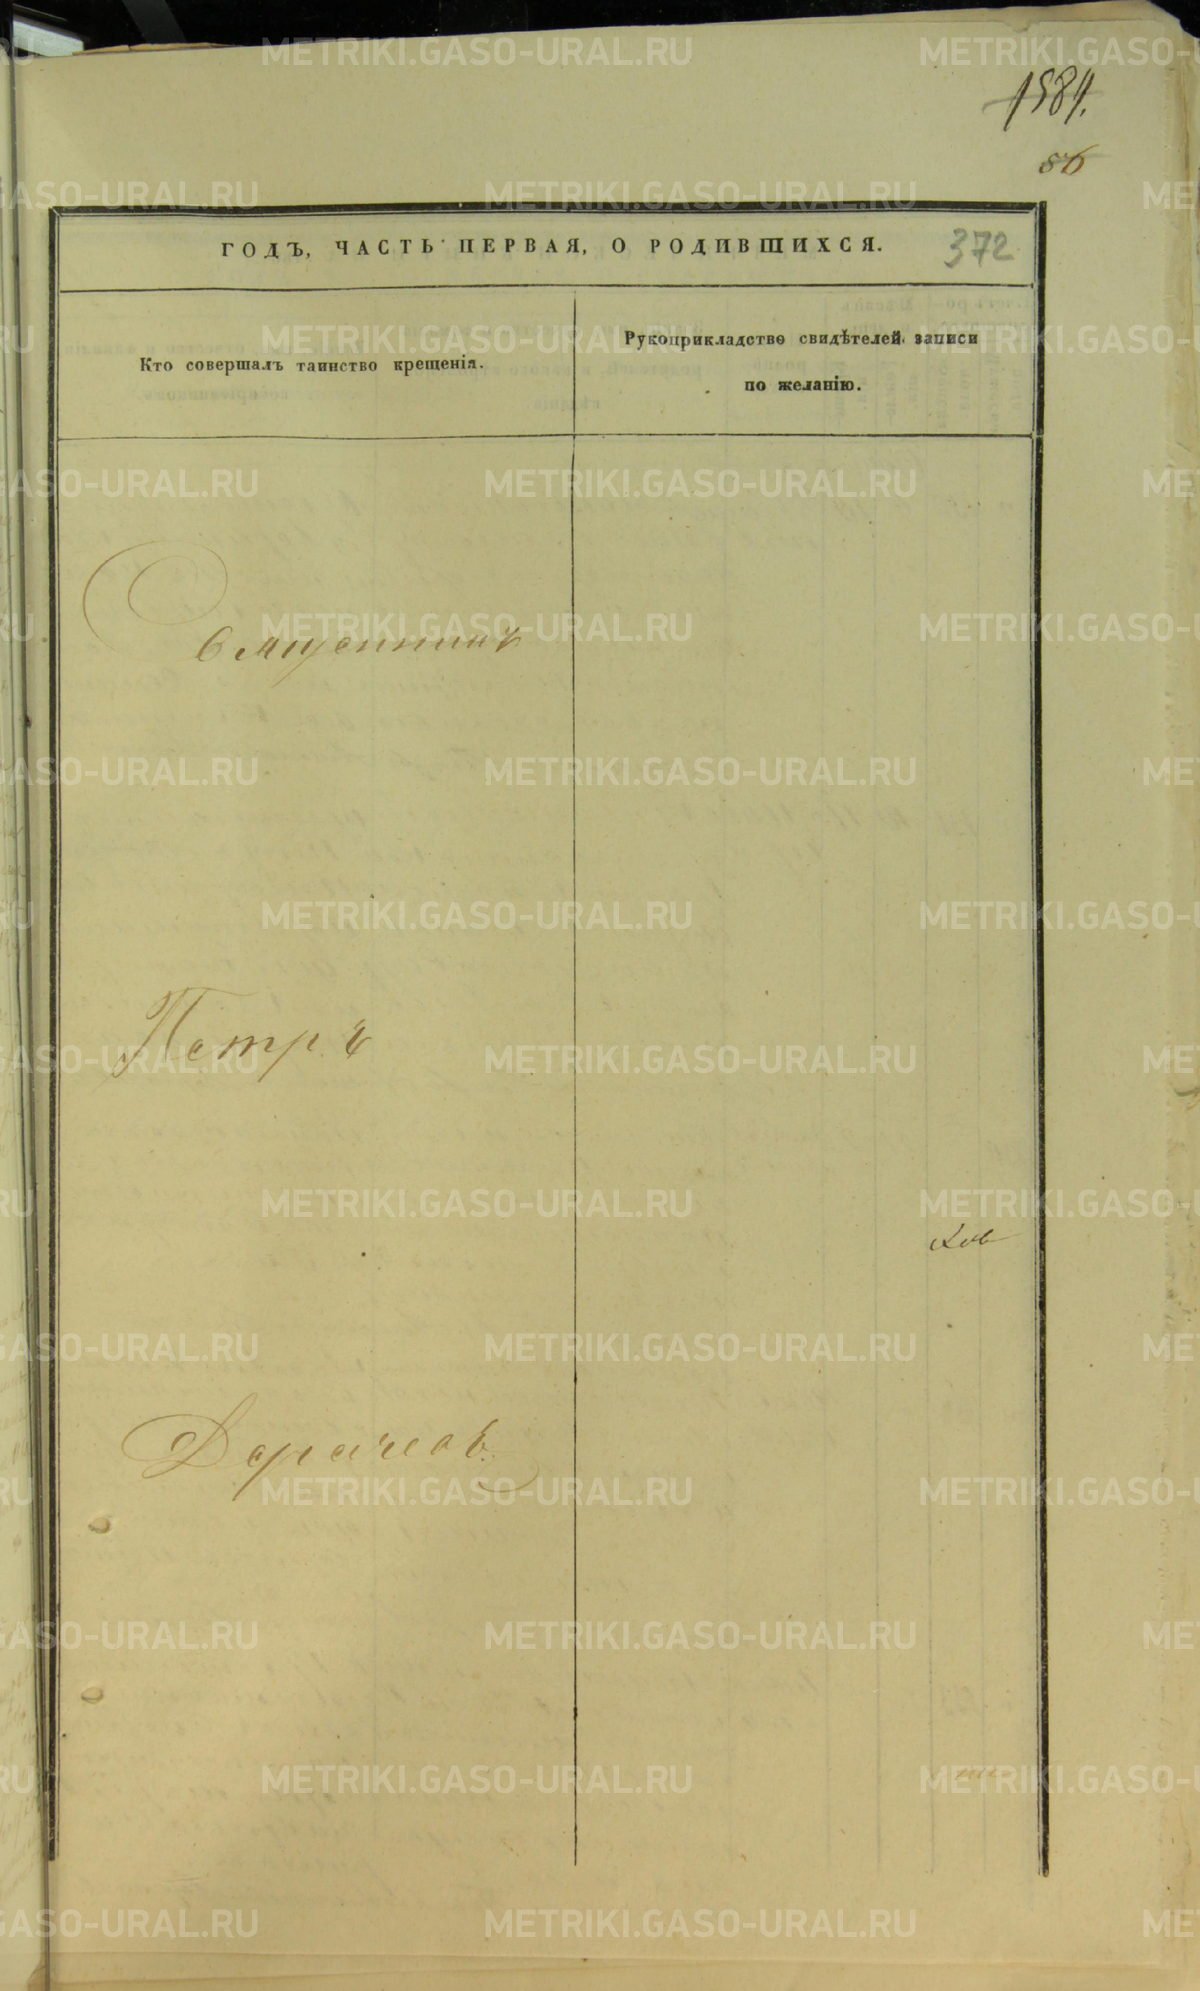 1581.
56
ГОДЪ, ЧАСТЬ ПЕРВАЯ, О РОДИВШИХСЯ.
372
Кто совершалъ таинство крещенія.
Рукоприкладство свидѣтелей записи
по желанію.
Священникъ
Петръ
METRIKI.GASO-URAL.RU